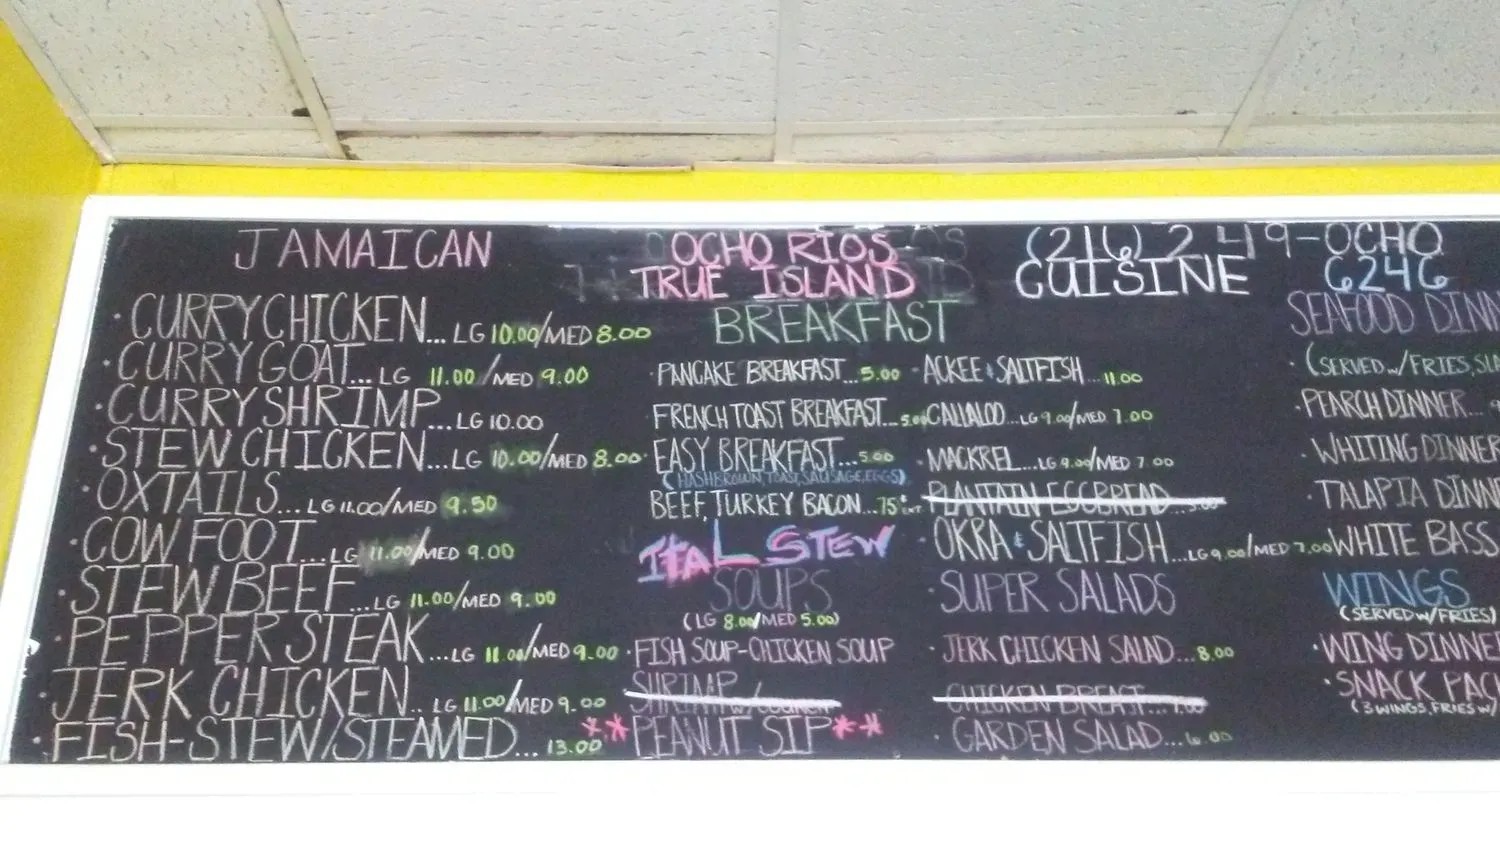 JAMAICAN
OCHO RIOS
TRUE ISLAND
(216) 249-OCHO
CUISINE 6246
· CURRY CHICKEN... LG 10.00/MED 8.00
· CURRY GOAT... LG 11.00/MED 9.00
· CURRY SHRIMP... LG 10.00
· STEW CHICKEN... LG 10.00/MED 8.00
· OXTAILS... LG 11.00/MED 9.50
· COW FOOT... LG 11.00/MED 9.00
· STEW BEEF... LG 11.00/MED 9.00
· PEPPER STEAK... LG 11.00/MED 9.00
· JERK CHICKEN.. LG 11.00/MED 9.00
· FISH-STEW/STEAMED... 13.00
BREAKFAST
· PANCAKE BREAKFAST... 5.00
FRENCH TOAST BREAKFAST... 5.00
· EASY BREAKFAST... 5.00
(HASHBROWN, TOAST, SAUSAGE, EGGS)
BEEF, TURKEY BACON... 75¢ EXT
ITAL STEW
SOUPS
(LG 8.00/MED 5.00)
· FISH SOUP-CHICKEN SOUP
SHRIMP w/
**PEANUT SIP**
· ACKEE & SALTFISH... 11.00
CALLALOO... LG 9.00/MED 7.00
· MACKREL... LG 9.00/MED 7.00
· PLANTAIN EGGBREAD... 5.00
· OKRA & SALTFISH... LG 9.00/MED 7.00
· SUPER SALADS
· JERK CHICKEN SALAD... 8.00
· CHICKEN BREAST... 7.00
· GARDEN SALAD... 6.00
SEAFOOD DINN
· (SERVED w/FRIES, SLA
· PEARCH DINNER...
· WHITING DINNER
· TALAPIA DINN
· WHITE BASS
WINGS
(SERVED w/FRIES)
· WING DINNE
· SNACK PAC
(3 WINGS, FRIES w/